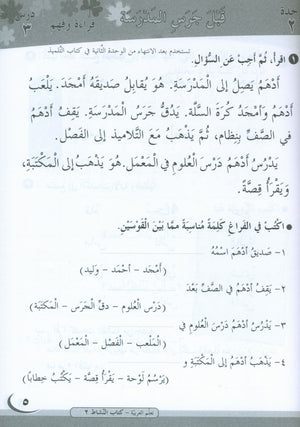 حدة ٢
قَبْلَ جَرَسِ الْمَدْرَسَةِ
درس ٣
قراءة وفهم
تستخدم بعد الانتهاء من الوحدة الثانية في كتاب التلميذ
١ اقرأ، ثُمَّ أَجِبْ عَنِ السُّؤالِ.
أَدْهَمُ يَصِلُ إلى الْمَدْرَسَةِ. هُوَ يُقابِلُ صَديقَهُ أَمْجَدَ. يَلْعَبُ
أَدْهَمُ وَأَمْجَدُ كُرَةَ السَّلَّة. يَدُقُّ جَرَسُ الْمَدْرَسَةِ. يَقِفُ أَدْهَمُ
في الصَّفِّ بِنِظامٍ، ثُمَّ يَذْهَبُ مَعَ التَّلاميذِ إلى الْفَصْلِ.
يَدْرُسُ أَدْهَمُ دَرْسَ الْعُلومِ في الْمَعْمَلِ. هُوَ يَذْهَبُ إلى الْمَكْتَبَةِ،
وَيَقْرَأُ قِصَّةً.
اكْتُبْ في الفَراغِ كَلِمَةً مُناسَبَةً مِمَّا بَيْنَ الْقَوْسَيْنِ.
١- صَديقُ أَدْهَمَ اسْمُهُ
(أَمْجَد - أَحْمَد - وَليد)
٢- يَقِفُ أَدْهَمُ في الصَّفِّ بَعْدَ
(دَرْسِ الْعُلومِ - دقِّ الْجَرَسِ - الْمَكْتَبَةِ)
٣- يَدْرُسُ أَدْهَمُ دَرْسَ الْعُلومِ في
(الْمَلْعَبِ - الْفَصْلِ - الْمَعْمَلِ)
٤- يَذْهَبُ أَدْهَمُ إلى الْمَكْتَبَةِ و
(يَرْسُمُ لَوْحَةً - يَقْرَأُ قِصَّةً - يَكْتُبُ خِطابًا)
تعلم العربية - كتاب النشاط ٢
٥